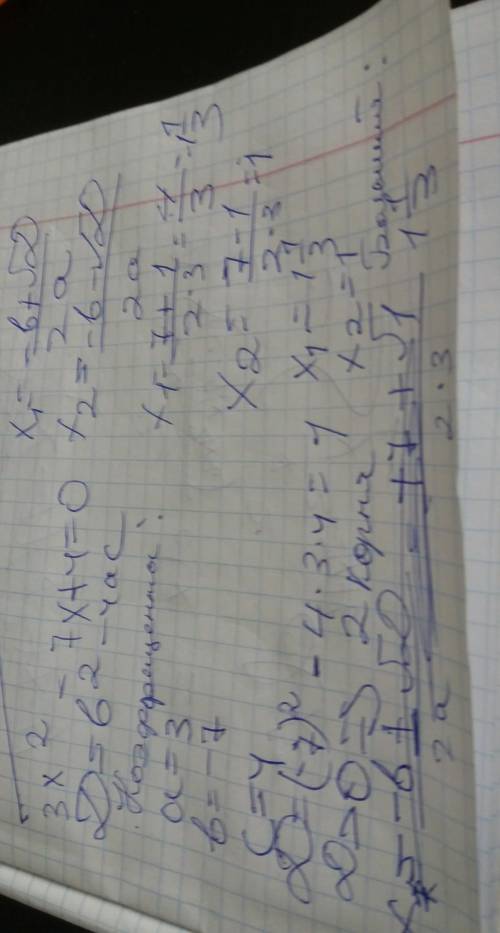 3x² - 7x + 4 = 0
D = b² - 4ac
Коэффициенты:
a = 3
b = -7
c = 4
D = (-7)² - 4·3·4 = 1
D > 0 => 2 корня
x = (-b + √D) / 2a = (+7 + √1) / 2·3
x₁ = (-b + √D) / 2a
x₂ = (-b - √D) / 2a
x₁ = (7 + 1) / 2·3 = 4/3 = 1 1/3
x₂ = (7 - 1) / 2·3 = 1
x₁ = 1 1/3
x₂ = 1
1 1/3